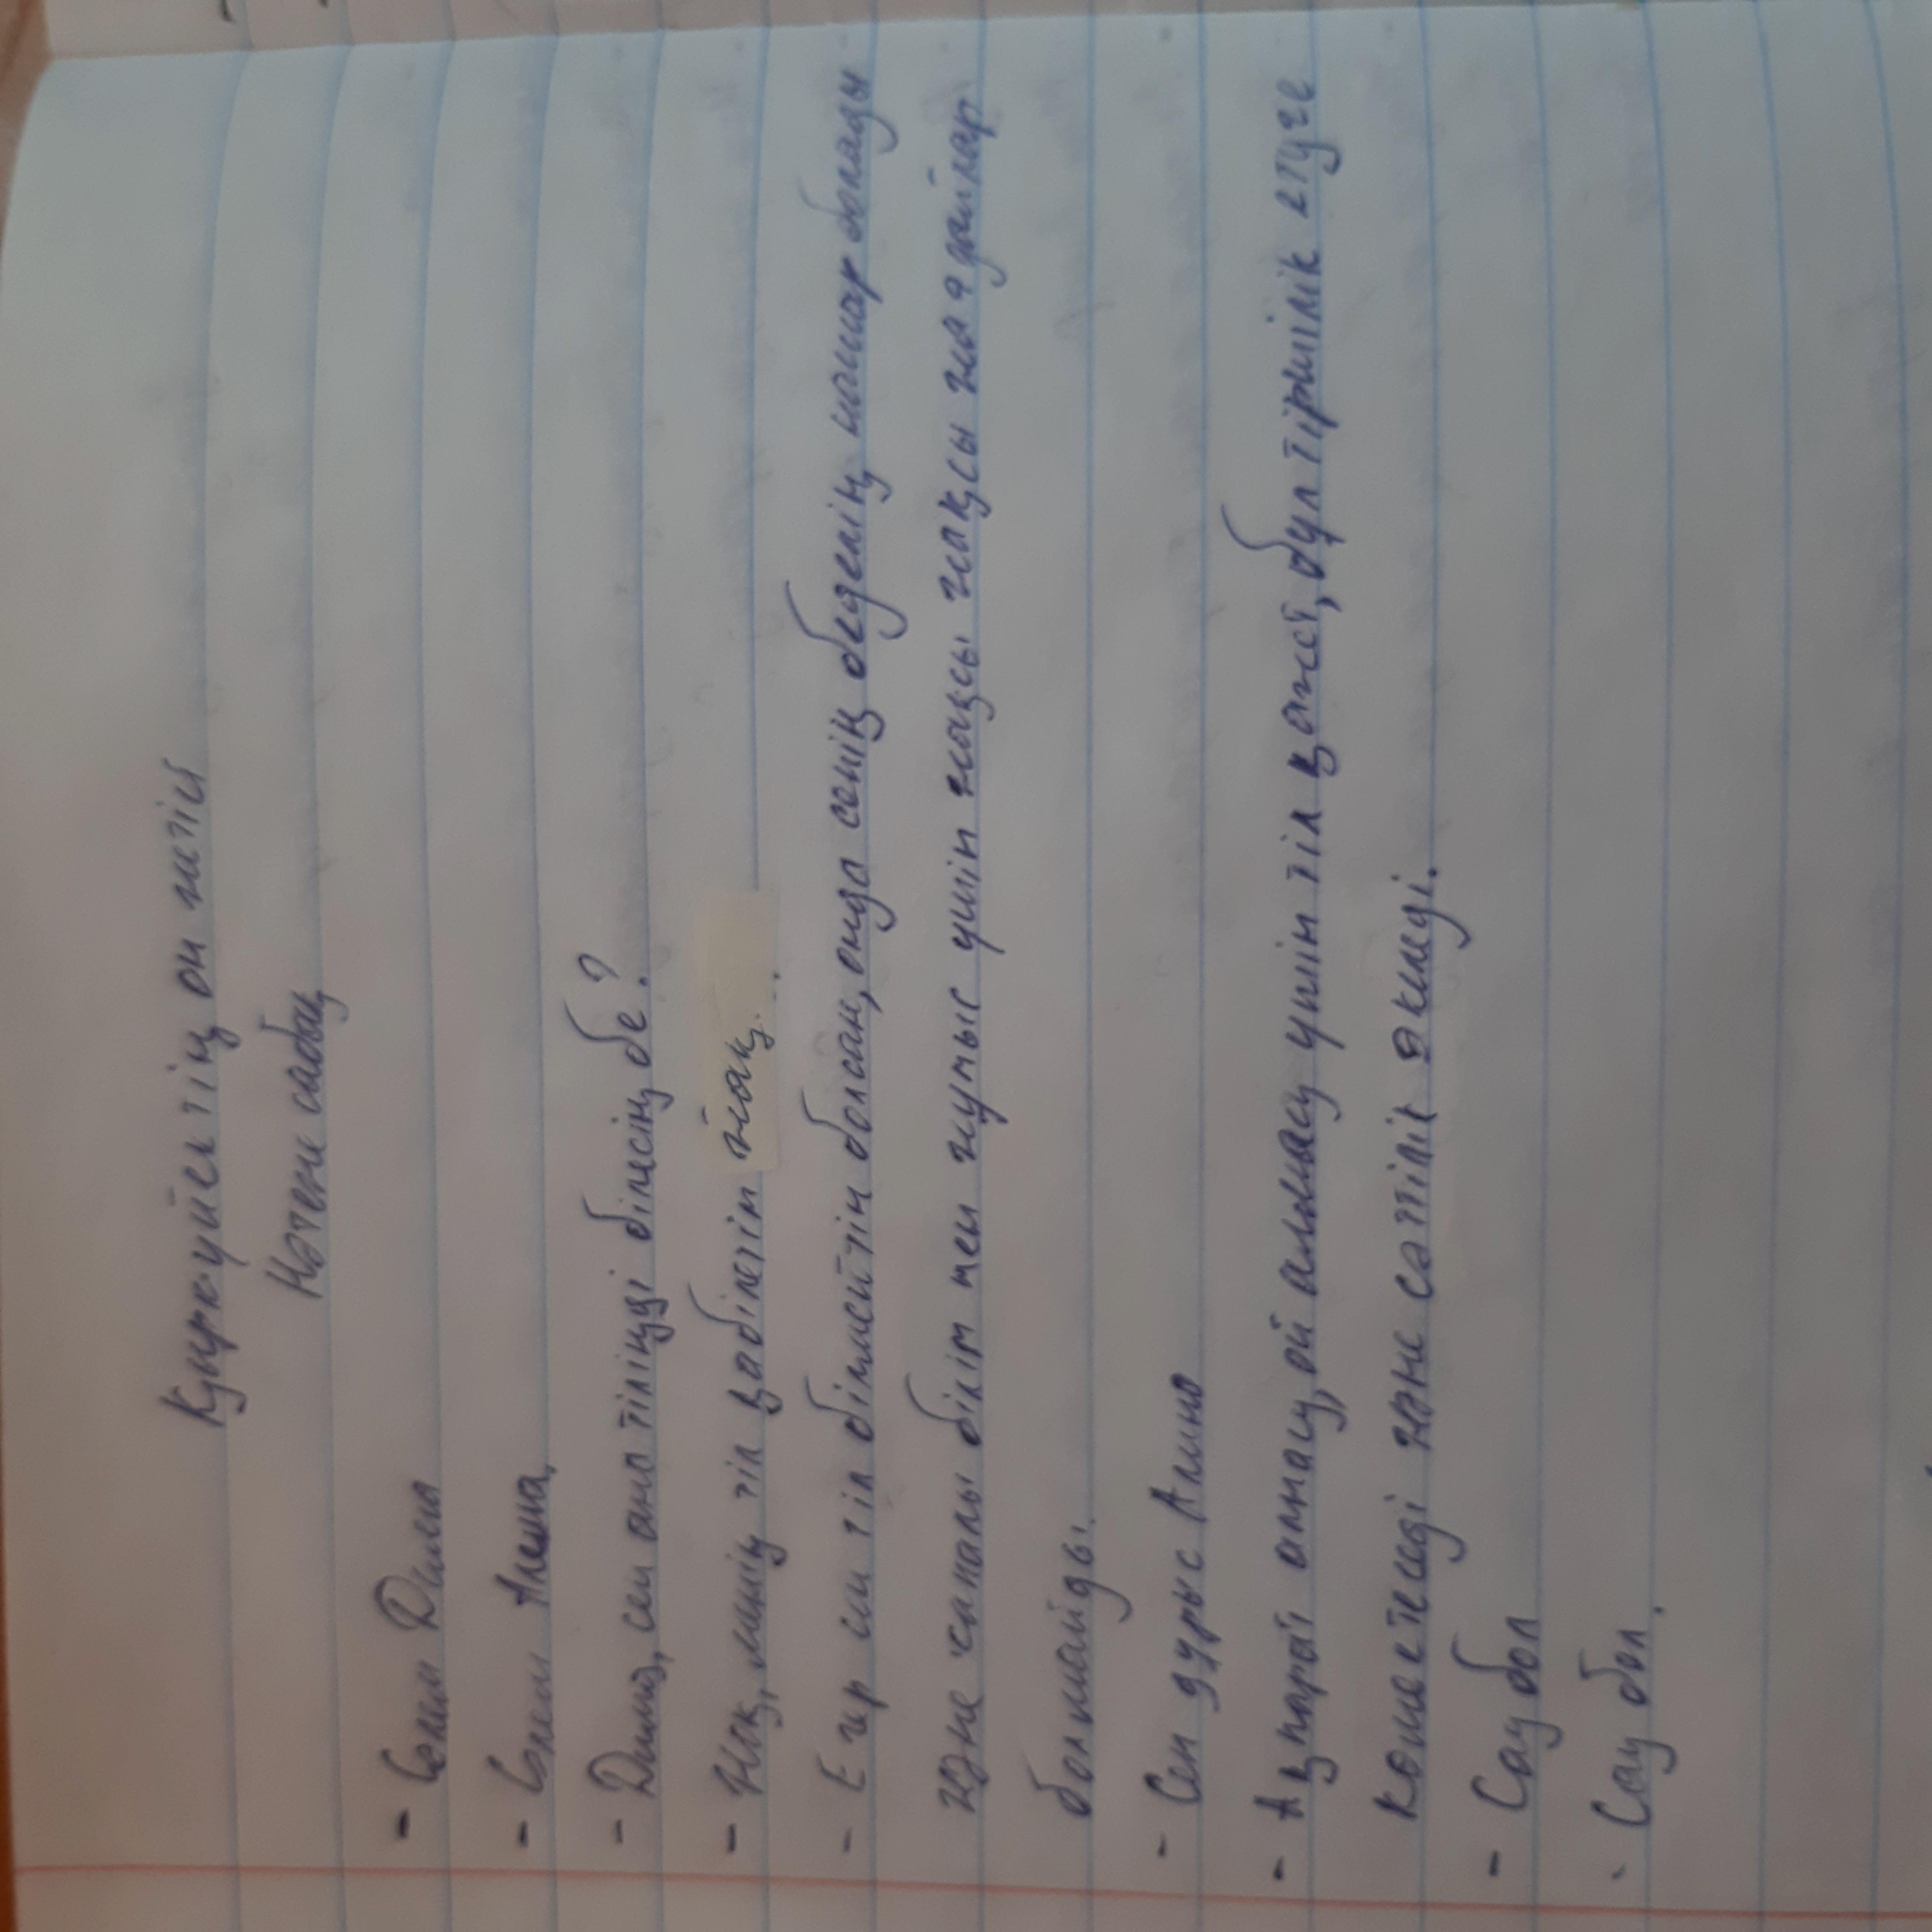 Қыркүйектің он жетісі
Нәтиже сабақ
- Сәлем Дима
- Сәлем Алена,
- Дима, сен ана тіліңді білесің бе?
- Жоқ, менің тіл қабілетім жоқ.
- Егер сен тіл білмейтін болсан, онда сенің беделің нашар болады
және сапалы білім мен жұмыс үшін жақсы жақсы жағдайлар
болмайды.
- Сен дұрыс Алина
- Ақпарат алмасу, ой алмасу үшін тіл қажет, бұл тіршілік етуге
көмектеседі және сәттілік әкеледі.
- Сау бол
- Сау бол.